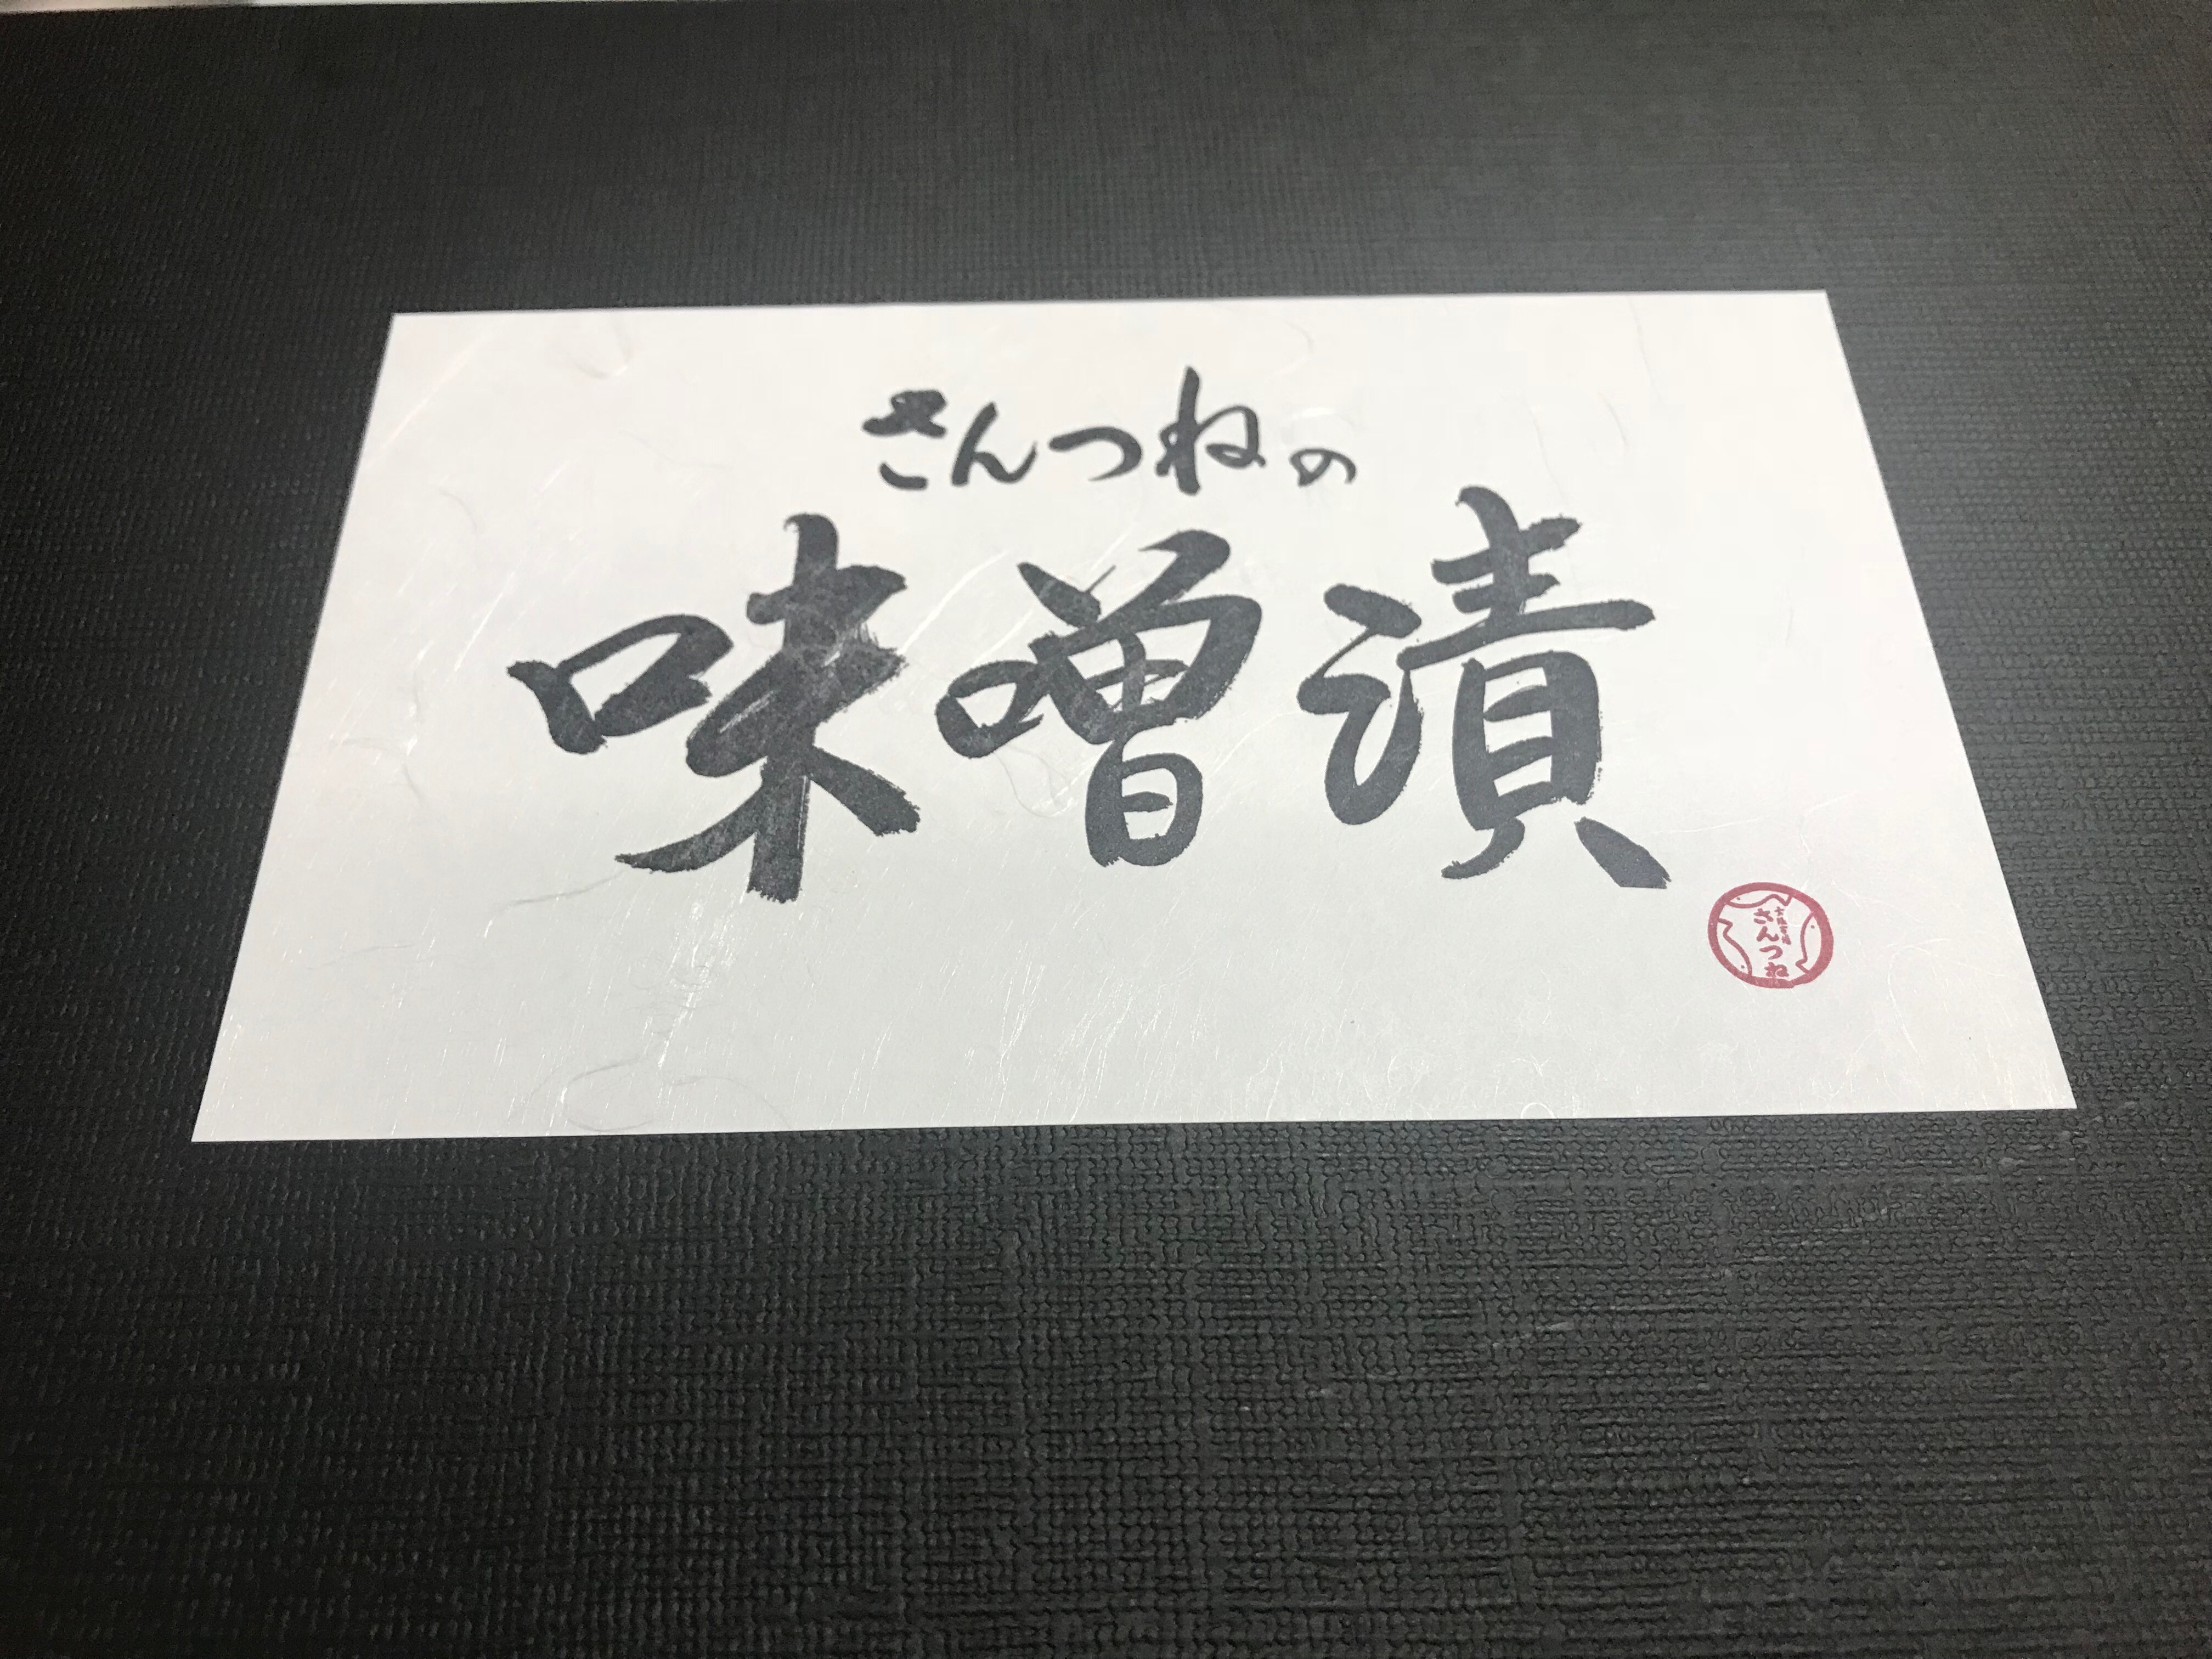 さんつねの
味噌漬
さんつね